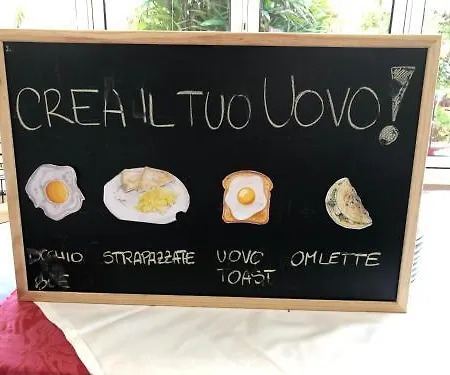 CREA IL TUO UOVO!
OCCHIO STRAPAZZATE UOVO OMLETTE
BUE TOAST